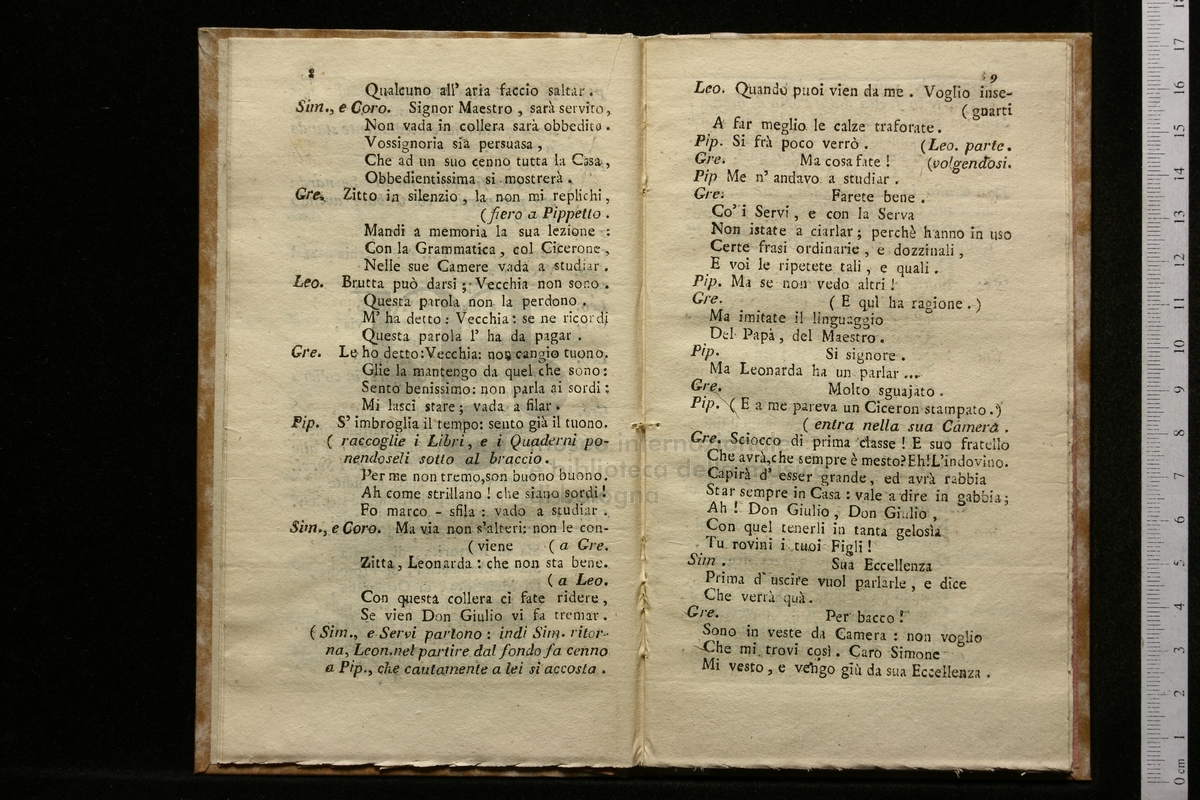 8
Qualcuno all' aria faccio saltar.
Sim., e Coro. Signor Maestro, sarà servito,
Non vada in collera sarà obbedito.
Vossignoria sia persuasa,
Che ad un suo cenno tutta la Casa,
Obbedientissima si mostrerà.
Gre. Zitto in silenzio, la non mi replichi,
(fiero a Pippetto.
Mandi a memoria la sua lezione:
Con la Grammatica, col Cicerone,
Nelle sue Camere vada a studiar.
Leo. Brutta può darsi; Vecchia non sono.
Questa parola non la perdono.
M' ha detto: Vecchia: se ne ricordi
Questa parola l' ha da pagar.
Gre. Le ho detto: Vecchia: non cangio tuono.
Glie la mantengo da quel che sono:
Sento benissimo: non parla ai sordi:
Mi lasci stare; vada a filar.
Pip. S' imbroglia il tempo: sento già il tuono.
( raccoglie i Libri, e i Quaderni po-
nendoseli sotto al braccio.
Per me non tremo, son buono buono.
Ah come strillano! che siano sordi!
Fo marco - sfila: vado a studiar.
Sim., e Coro. Ma via non s'alteri: non le con-
(viene (a Gre.
Zitta, Leonarda: che non sta bene.
(a Leo.
Con questa collera ci fate ridere,
Se vien Don Giulio vi fa tremar.
(Sim., e Servi partono: indi Sim. ritor-
na, Leon. nel partire dal fondo fa cenno
a Pip., che cautamente a lei si accosta.
9
Leo. Quando puoi vien da me. Voglio inse-
(gnarti
A far meglio le calze traforate.
Pip. Si frà poco verrò. (Leo. parte.
Gre. Ma cosa fate! (volgendosi.
Pip Me n' andavo a studiar.
Gre. Farete bene.
Co' i Servi, e con la Serva
Non istate a ciarlar; perchè hanno in uso
Certe frasi ordinarie, e dozzinali,
E voi le ripetete tali, e quali.
Pip. Ma se non vedo altri!
Gre. (E quì ha ragione.)
Ma imitate il linguaggio
Del Papà, del Maestro.
Pip. Si signore.
Ma Leonarda ha un parlar...
Gre. Molto sguajato.
Pip. (E a me pareva un Ciceron stampato.)
(entra nella sua Camera.
Gre. Sciocco di prima classe! E suo fratello
Che avrà, che sempre è mesto? Eh! L'indovino.
Capirà d' esser grande, ed avrà rabbia
Star sempre in Casa: vale a dire in gabbia;
Ah! Don Giulio, Don Giulio,
Con quel tenerli in tanta gelosìa
Tu rovini i tuoi Figli!
Sim. Sua Eccellenza
Prima d' uscire vuol parlarle, e dice
Che verrà quà.
Gre. Per bacco!
Sono in veste da Camera: non voglio
Che mi trovi così. Caro Simone
Mi vesto, e vengo giù da sua Eccellenza.